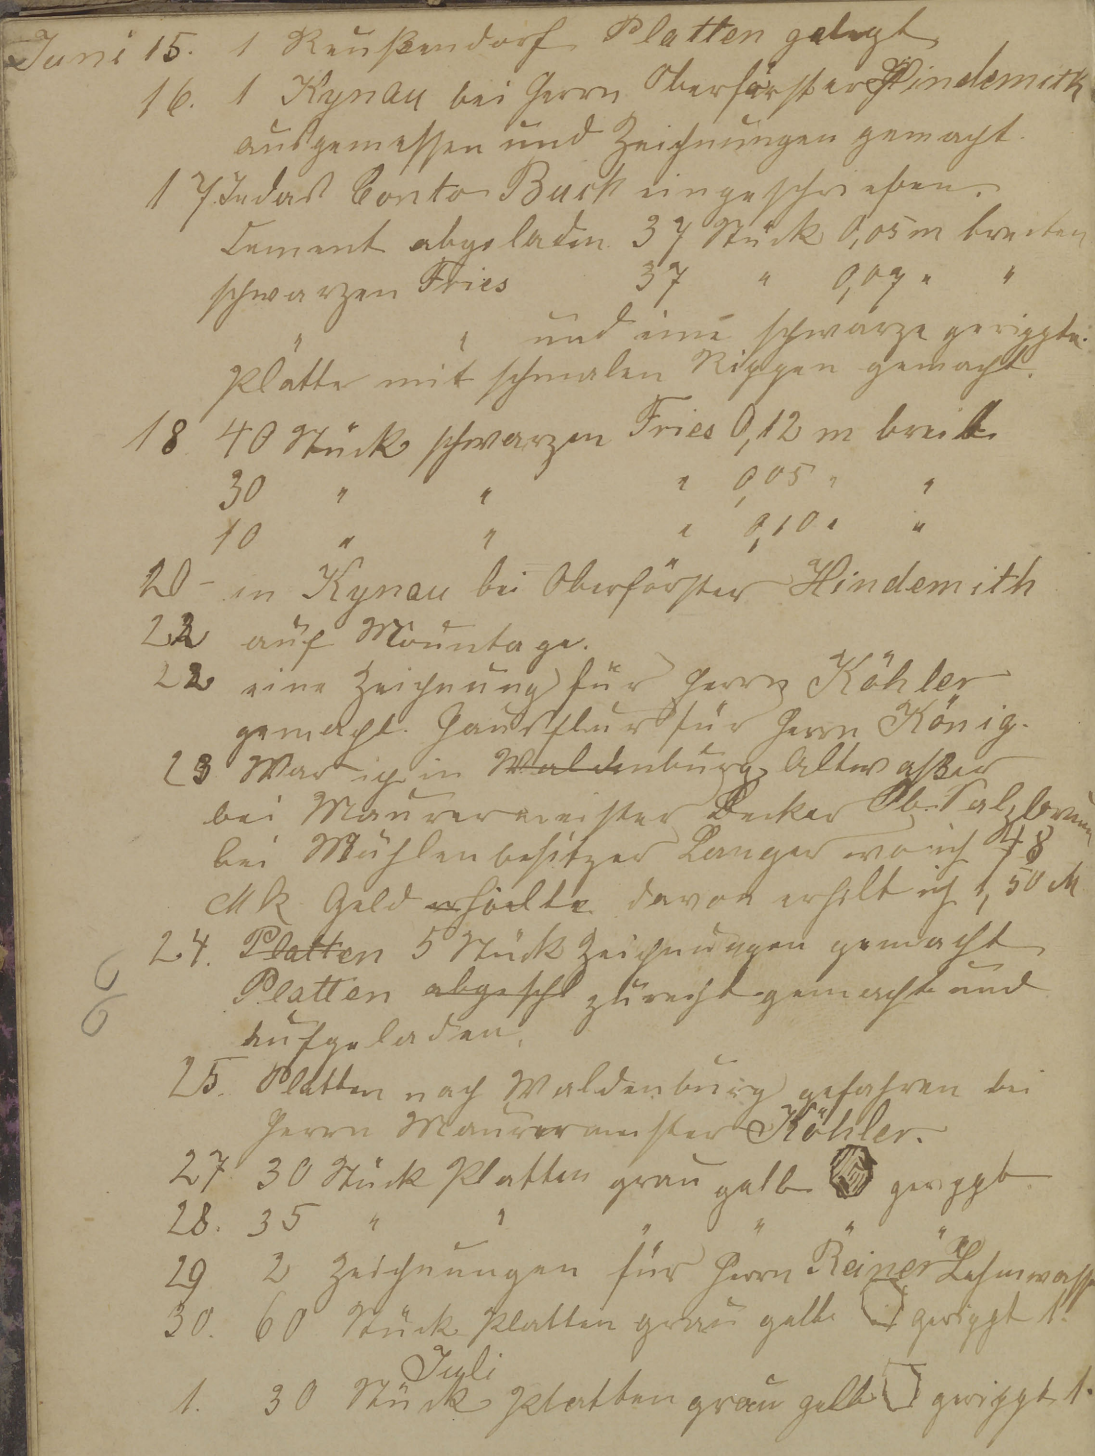 Juni 15. 1 Reußendorf Platten gelegt
16. 1 Kynau bei Herrn Oberförster Hindemith
ausgemessen und Zeichnungen gemacht.
17. In das Conto Buch eingeschrieben.
Cement abgeladen 37 Stück 0,05 m breiten
schwarzen Fries 37 " 0,07 " "
" " und eine schwarze gerippte
Platte mit schmalen Rippen gemacht.
18 40 Stück schwarzen Fries 0,12 m breit
30 " " " 0,05 " "
10 " " " 0,10 " "
20 - in Kynau bei Oberförster Hindemith
22 auf Mountage.
22 eine Zeichnung für Herrn Köhler
gemacht. Hausflur für Herrn König.
23 War ich in Waldenburg, Altwaßer
bei Maurermeister Decker Ob. Salzbrunn
bei Mühlenbesitzer Langer wo ich 48
Mk Geld erhielte davon erhilt ich 1,50 M
24. Platten 5 Stück Zeichnungen gemacht
Platten abgeschl zurecht gemacht und
aufgeladen.
25. Platten nach Waldenburg gefahren bei
Herrn Maurermeister Köhler.
27 30 Stück Platten grau gelb gerippt
28. 35 " " " " " "
29 2 Zeichnungen für Herrn Reiner Lehmwasser
30. 60 Stück Platten grau gelb gerippt 1.
Juli
1. 30 Stück Platten grau gelb gerippt 1.